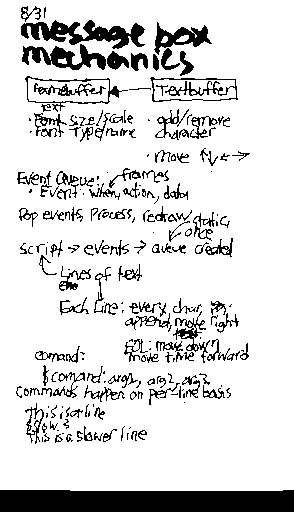 8/31
message box
mechanics
Framebuffer Textbuffer
text
· Font size/scale · add/remove
· Font Type/name character
· move ↑↓ ← →
Event Queue: frames
· Event: when, action, data
Pop events, Process, redraw static,
once
script → events → queue created
Lines of text
Each Line: every char,
append, move right
EOL: move down
comand: move time forward
{comand: arg1, arg2, arg3
Commands happen on per-line basis
This is a line
{slow}
This is a slower line